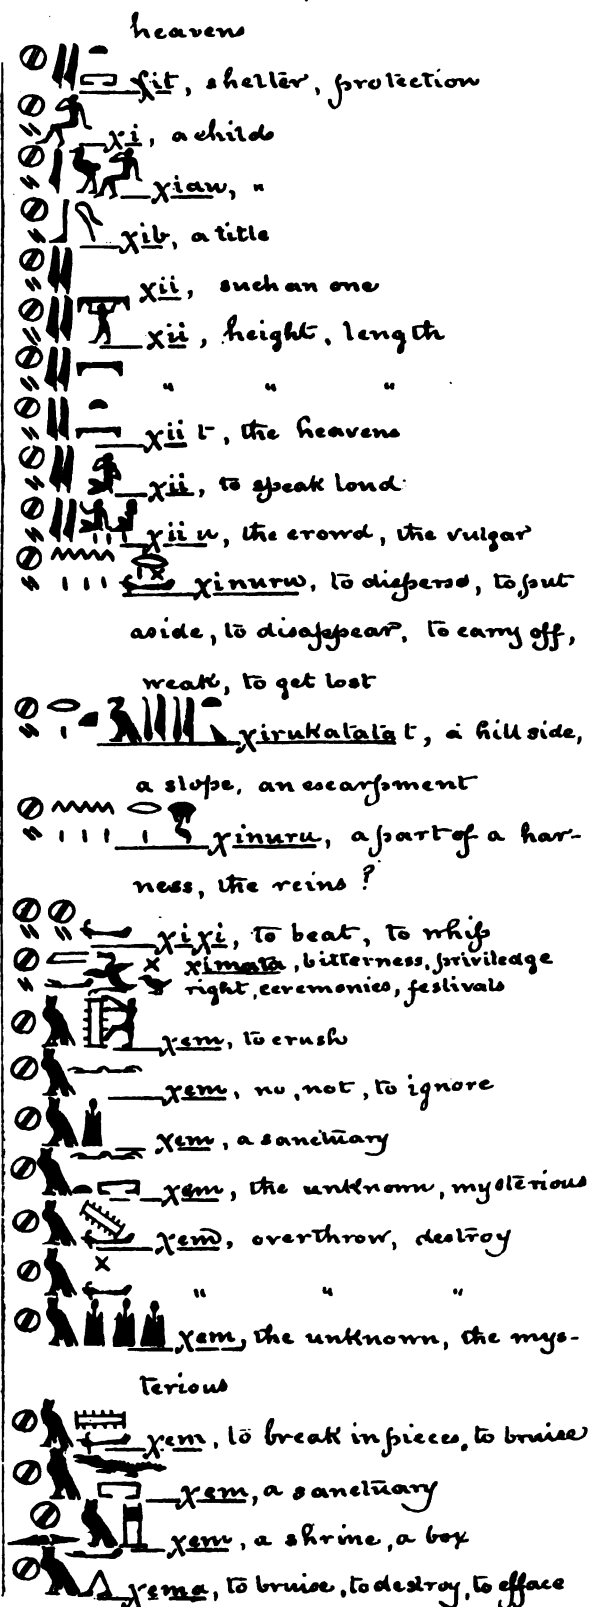 heavens
χit, shelter, protection
χi, a child
χiau, "
χib, a title
χii, such an one
χii, height, length
" " "
χii t, the heavens
χii, to speak loud
χii u, the crowd, the vulgar
χinuru, to disperse, to put
aside, to disappear, to carry off,
weak, to get lost
χirukatata t, a hill side,
a slope, an escarpment
χinuru, a part of a har-
ness, the reins?
χiχi, to beat, to whip
χimata, bitterness, priviledge
right, ceremonies, festivals
χem, to crush
χem, no, not, to ignore
χem, a sanctuary
χem, the unknown, mysterious
χem, overthrow, destroy
" " "
χem, the unknown, the mys-
terious
χem, to break in pieces, to bruise
χem, a sanctuary
χem, a shrine, a box
χema, to bruise, to destroy, to efface